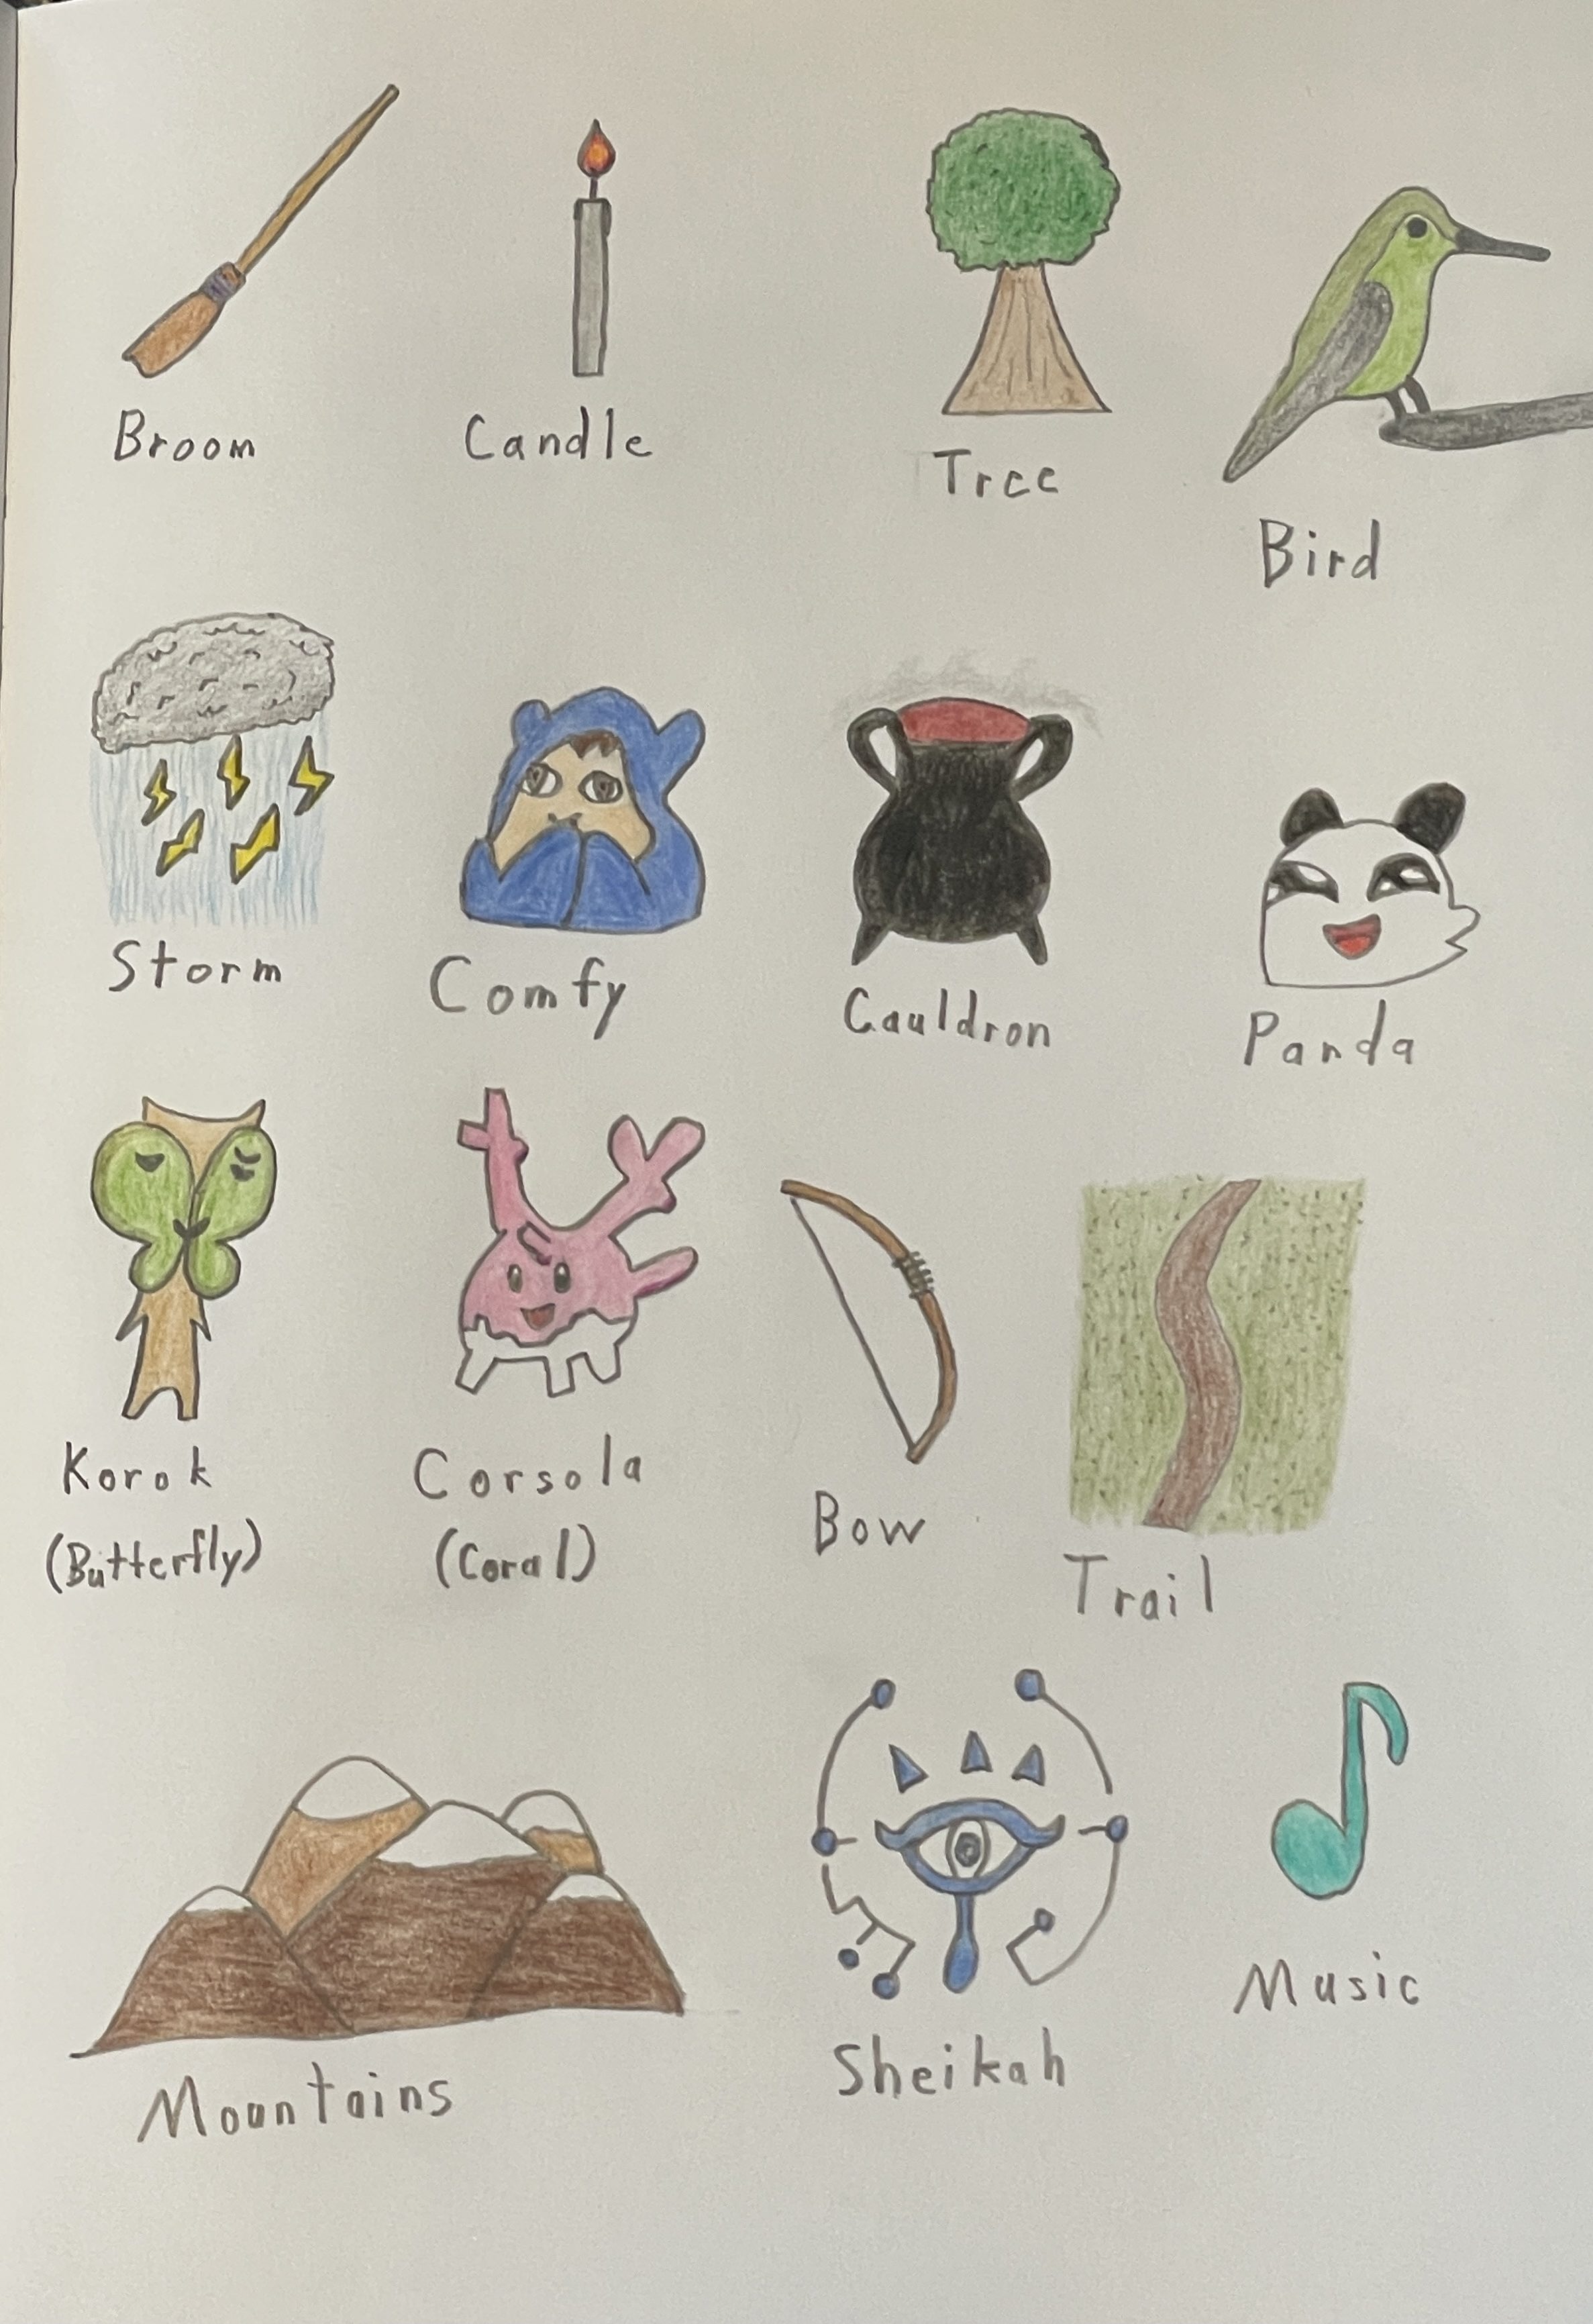 Broom
Candle
Tree
Bird
Storm
Comfy
Cauldron
Panda
Korok
(Butterfly)
Corsola
(Coral)
Bow
Trail
Mountains
Sheikah
Music